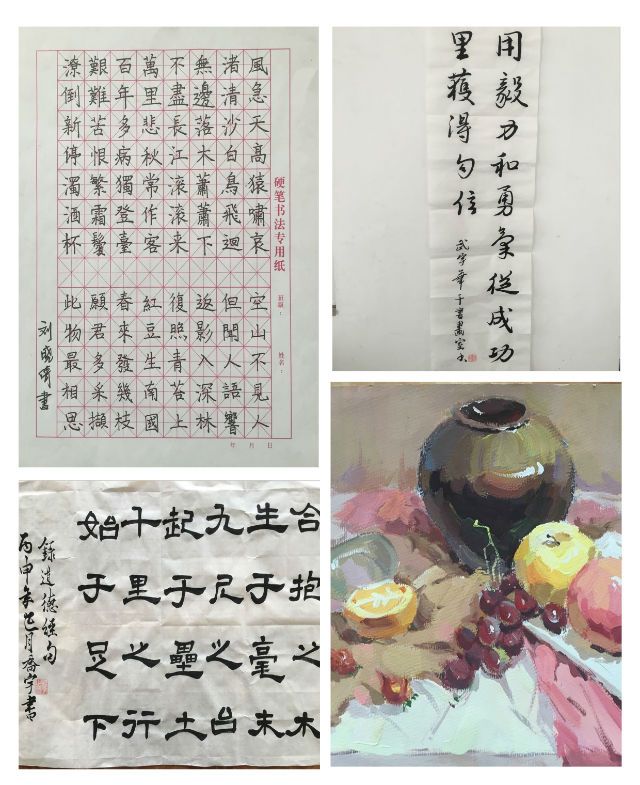 硬笔书法专用纸
班级：
姓名：
風急天高猿嘯哀
渚清沙白鳥飛迴
無邊落木蕭蕭下
不盡長江滾滾来
萬里悲秋常作客
百年多病獨登臺
艱難苦恨繁霜鬢
潦倒新停濁酒杯
空山不見人
但聞人語響
返影入深林
復照青苔上
紅豆生南國
春來發幾枝
願君多采擷
此物最相思
刘晓晴書
年 月 日
用毅力和勇氣從成功
里獲得自信
武宇華于書畫室
合抱之木
生于毫末
九尺之台
起于壘土
千里之行
始于足下
錄道德經句
丙申年巳月喬宇書